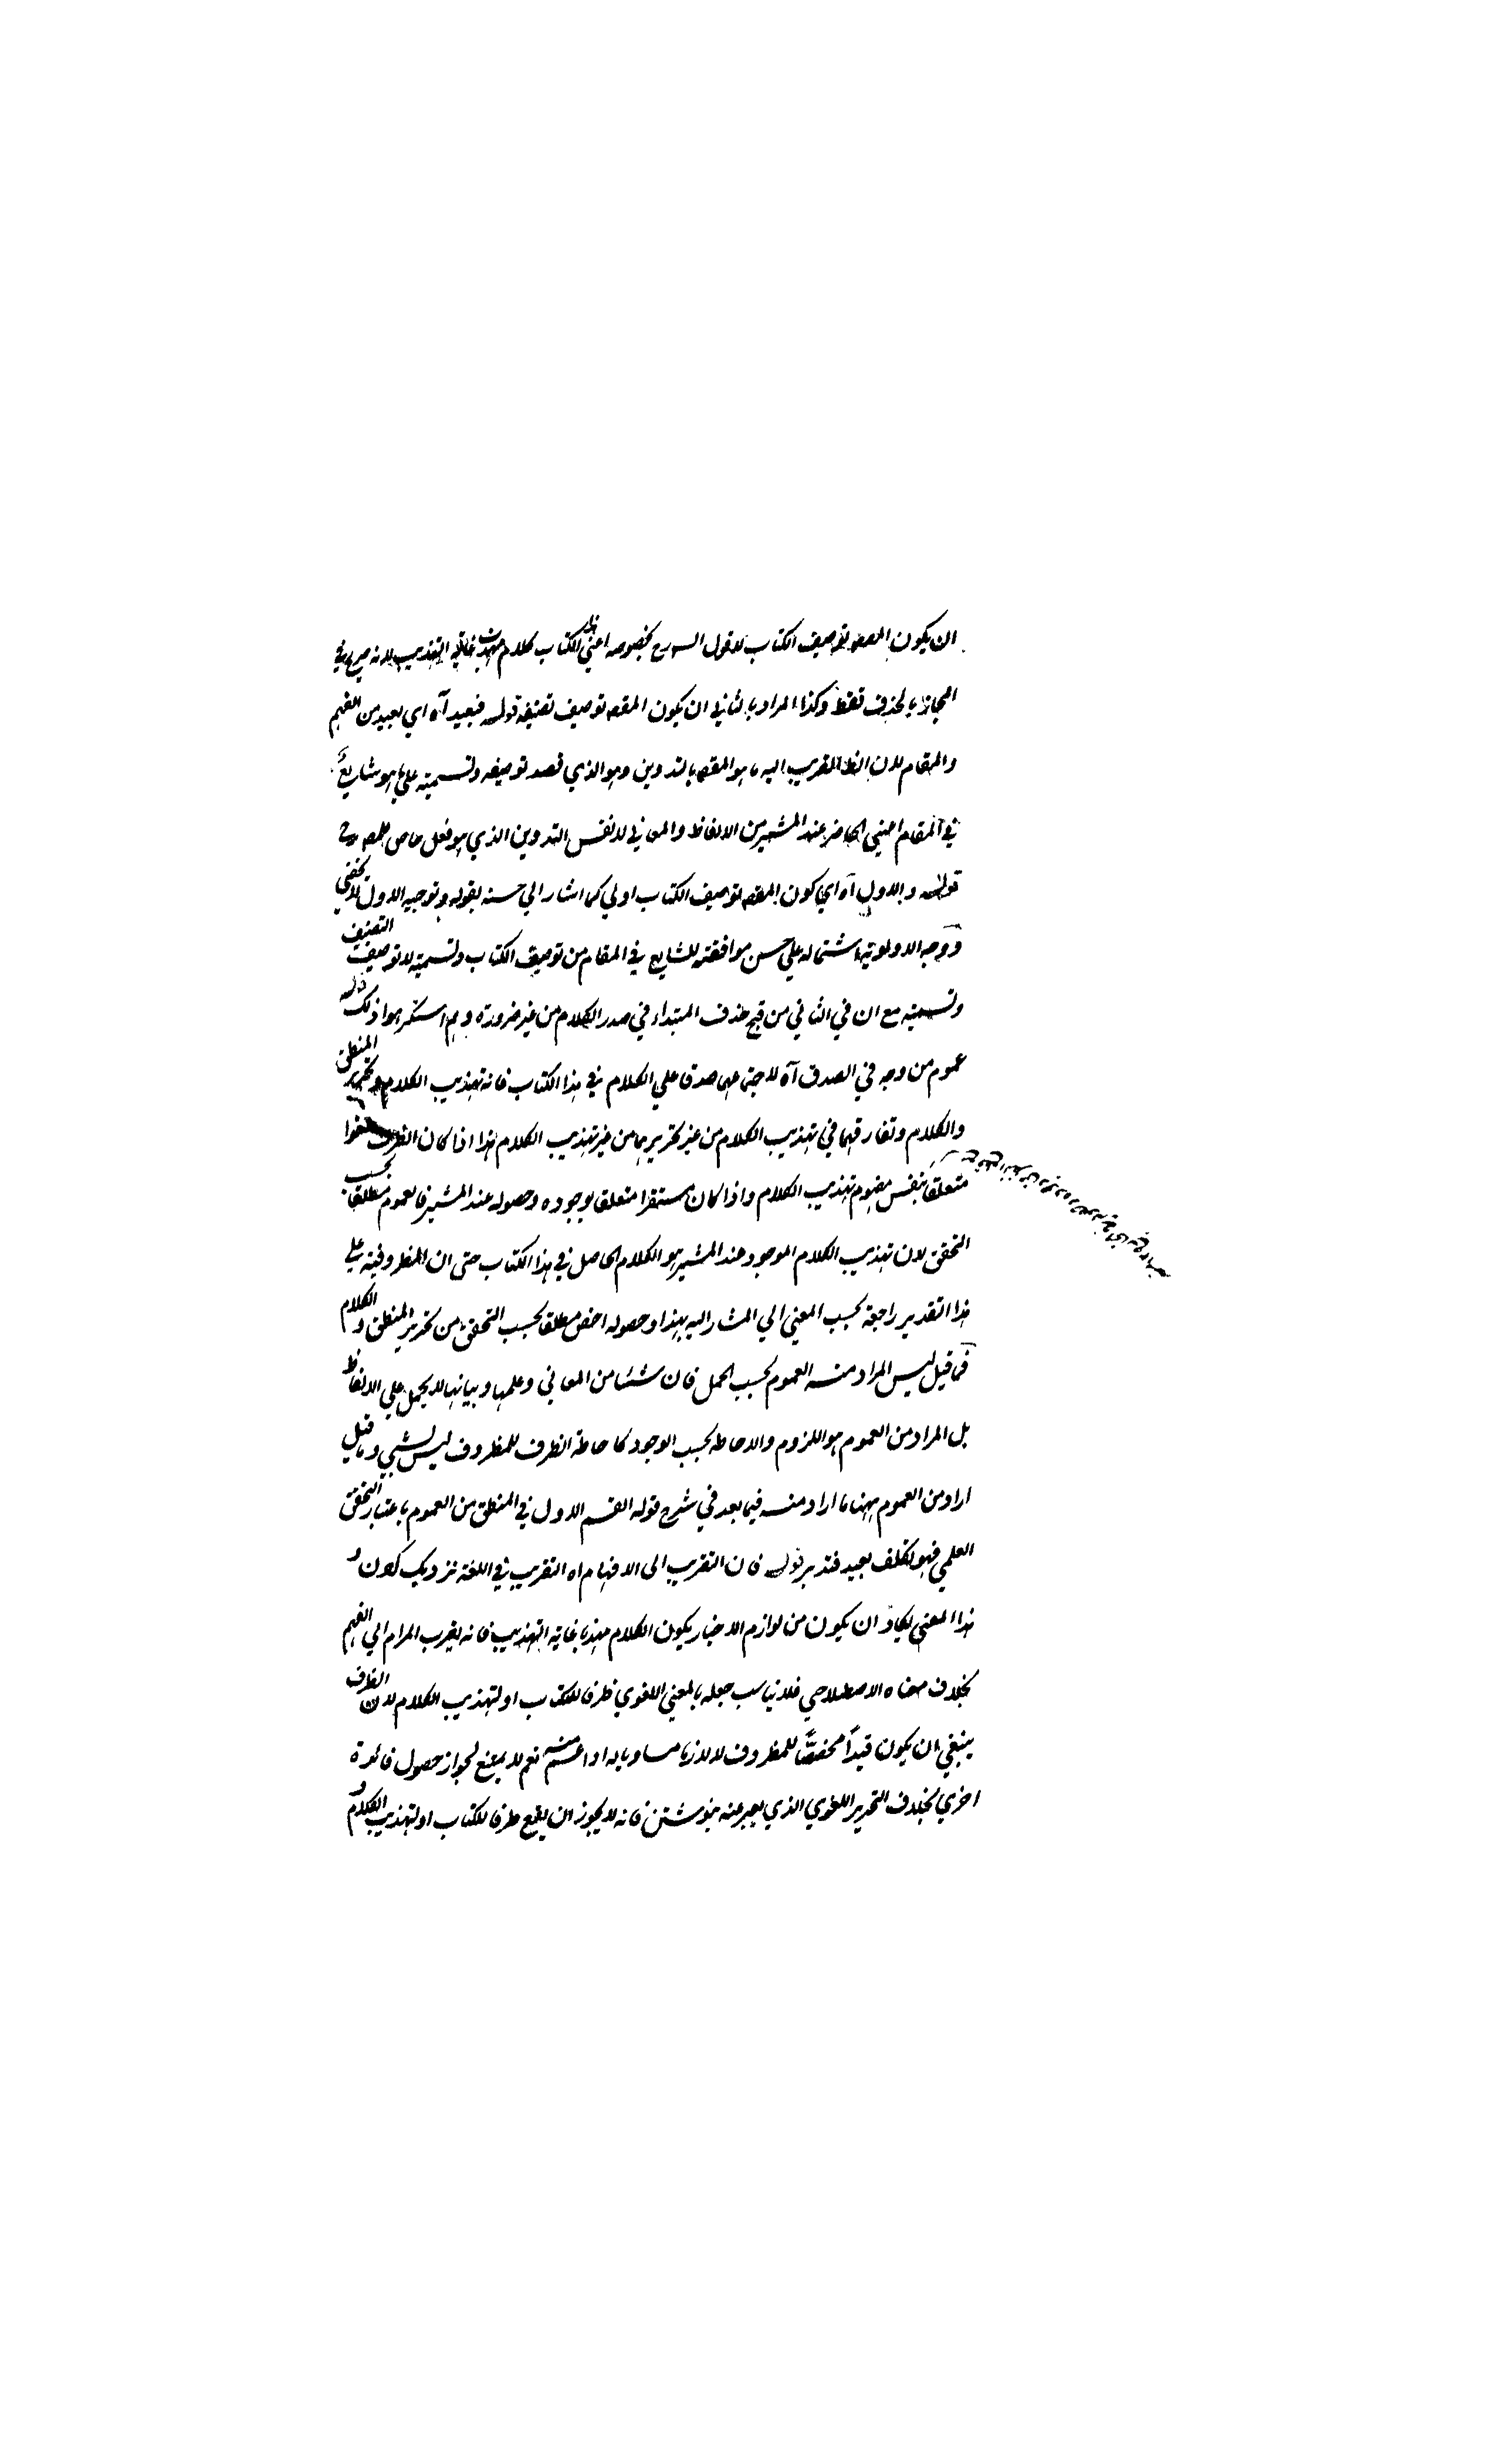 ان يكون المقصود توصيف الكتاب لا قول الشارح بخصوصه اعني هذا الكتاب كلام مهذب غاية التهذيب لانه صريح في
المجاز بالحذف فقط وكذا المراد بالثاني ان يكون المقصود توصيف تصنيفه قوله فبعيد آه اي بعيد من الفهم
والمقام لان النظر القريب اليه ما هو المقصود بالتدوين وهو الذي قصد توصيفه وتسميته علي ما هو شايع
في المقام اعني الحاضر عند المشير من الالفاظ والمعاني لا نفس التدوين الذي هو فعل خاص للمصنف ح
قوله والاول آه اي كون المقصود توصيف الكتاب اولي كما اشار الي حسنه بقوله وتوجيه الاول لا يخفي
ووجه الاولوية اشتماله علي حسن موافقته للشايع في المقام من توصيف الكتاب وتسميته لا توصيف التصنيف
وتسميته مع ان في الثاني من قبح حذف المبتداء في صدر الكلام من غير ضرورة وهم استكرهوا ذلك قوله
عموم من وجه في الصدق آه لاجتماعهما صدقا علي الكلام في هذا الكتاب فانه تهذيب الكلام وتحرير المنطق
والكلام وتفارقهما في تهذيب الكلام من غير تحريرهما من غير تهذيب الكلام هذا اذا كان الظرف لغوا
متعلقا بنفس مفهوم تهذيب الكلام واذا كان مستقرا متعلقا بوجوده وحصوله عند المشير فالعموم مطلقا بحسب
التحقق لان تهذيب الكلام الموجود عند المشير هو الكلام الحاصل في هذا الكتاب حتى ان المظروفية علي
هذا التقدير راجعة بحسب المعني الي المشار اليه بهذا وحصوله اخص مطلقا بحسب التحقق من تحرير المنطق والكلام
فما قيل ليس المراد منه العموم بحسب الحمل فان شيئا من المعاني وعلمها وبيانها لا يحمل علي الالفاظ
بل المراد من العموم هو اللزوم والاحاطة بحسب الوجود كاحاطة الظرف للمظروف ليس بشيي وما قيل
اراد من العموم ههنا ما اراد منه فيما بعد في شرح قوله القسم الاول في المنطق من العموم باعتبار التحقق
العلمي فهو تكلف بعيد فتدبر قوله فان التقريب الى الافهام اه التقريب في اللغة نزديك كردن و
هذا المعني يكاد ان يكون من لوازم الاخبار بكون الكلام مهذبا غاية التهذيب فانه يقرب المرام الي الفهم
بخلاف معناه الاصطلاحي فلا يناسب جعله بالمعني اللغوي ظرفا للكتاب او لتهذيب الكلام لان الظرف
ينبغي ان يكون قيداً مخصصاً للمظروف لا لازما مساويا له او اعم منه نعم لا يمتنع لجواز حصول فائدة
اخري بخلاف التحرير اللغوي الذي يعبر عنه بنوشتن فانه لا يجوز ان يقع ظرفا للكتاب او لتهذيب الكلام و